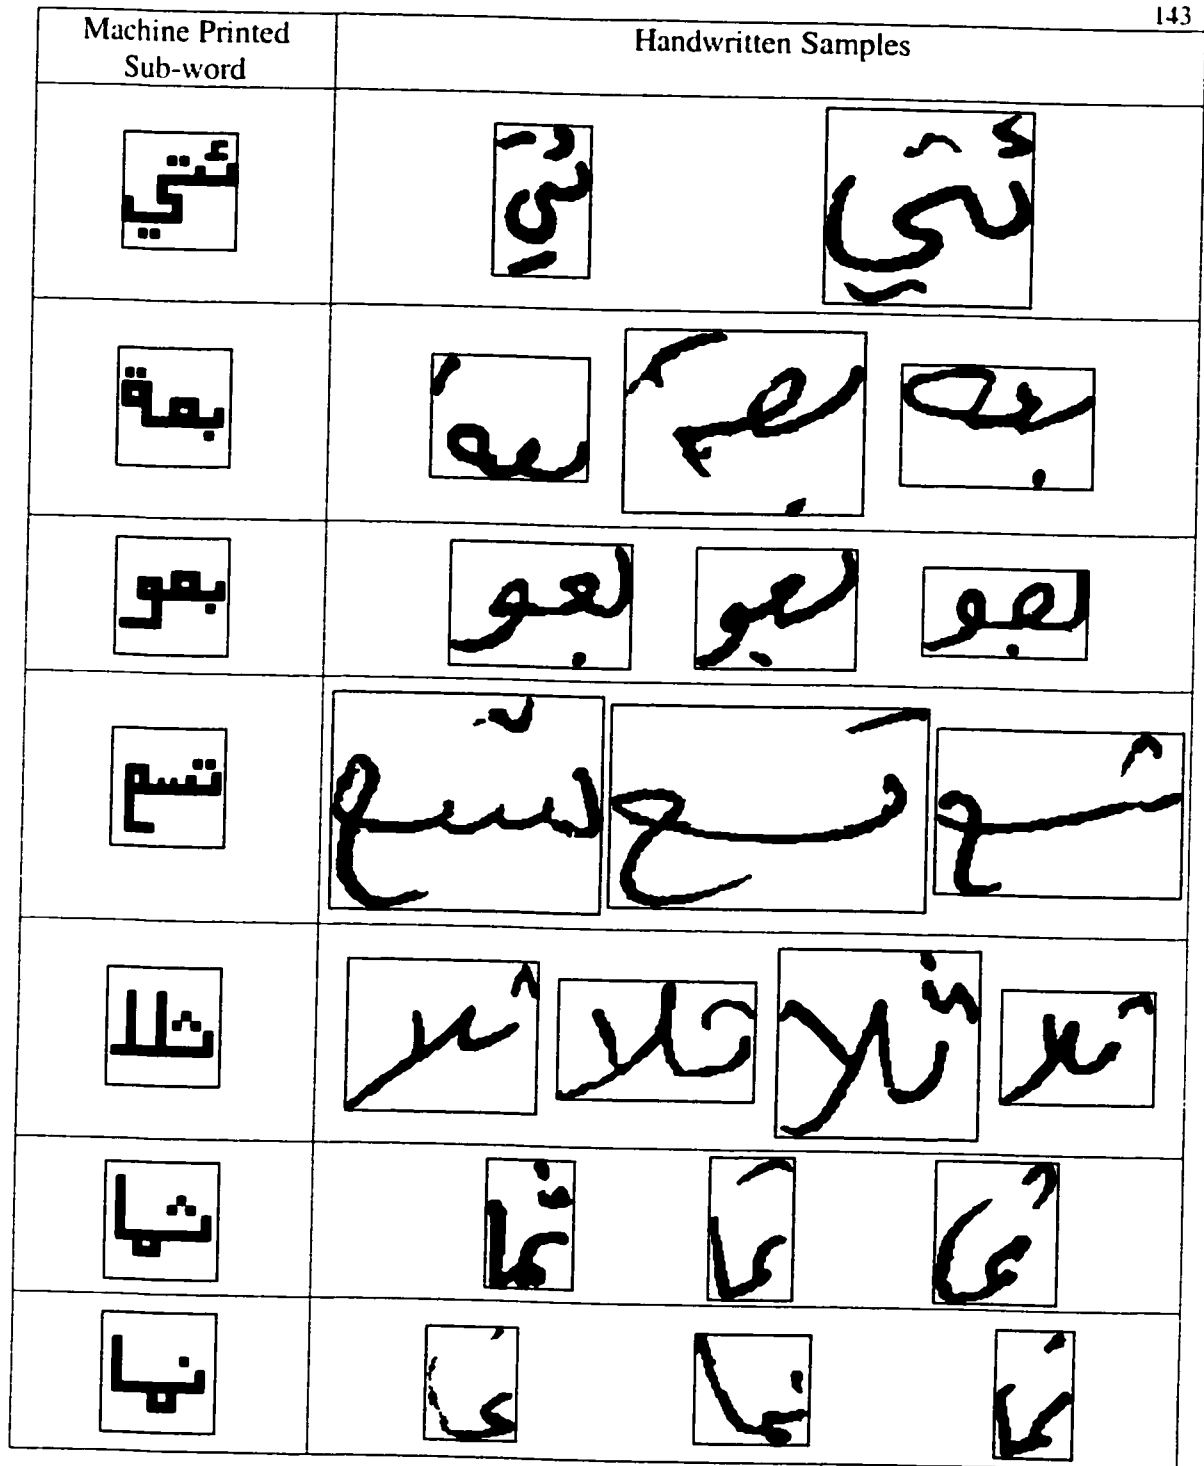 143
Machine Printed Sub-word
Handwritten Samples
ئتي ئتي ئتي
بعة بعة بعة بعة
بعو بعو بعو بعو
تسع تسع تسع تسع
ثلا ثلا ثلا ثلا ثلا
ثما ثما ثما ثما
نما نما نما نما